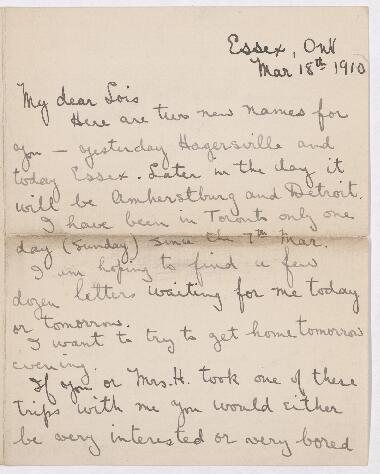 Essex, Ont
Mar 18th 1910
My dear Lois
Here are two new names for
you — yesterday Hagersville and
today Essex. Later in the day it
will be Amherstburg and Detroit.
I have been in Toronto only one
day (Sunday) since the 7th Mar.
I am hoping to find a few
dozen letters waiting for me today
or tomorrow.
I want to try to get home tomorrow
evening.
If you or Mrs. H. took one of these
trips with me you would either
be very interested or very bored